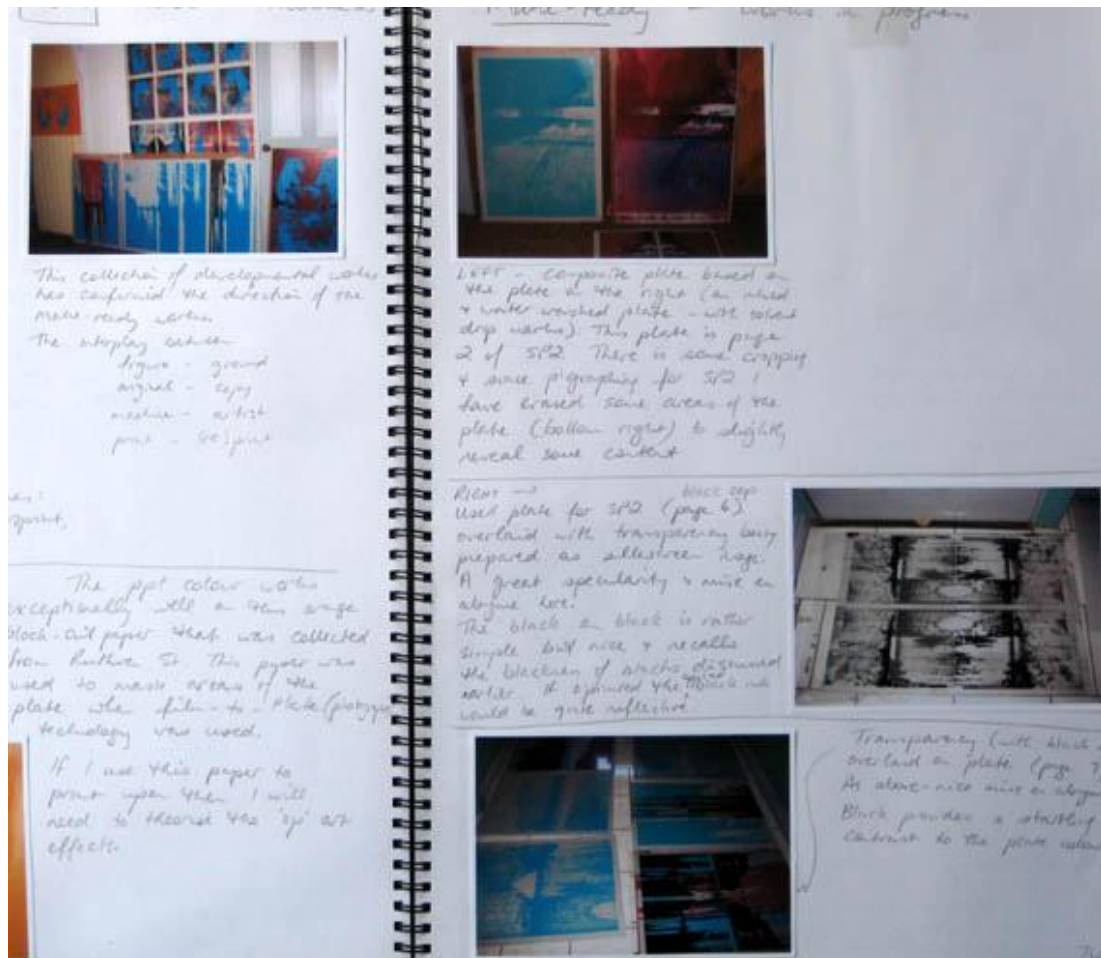 Make-ready - works in progress
This collection of developmental works
has confirmed the direction of the
make-ready works.
The interplay between
figure - ground
original - copy
machine - artist
print - (re)print
The ppt colour works
exceptionally well on this orange
block-out paper that was collected
from St. This paper was
used to mask areas of the
plate when film-to-plate
technology was used.
If I use this paper to
print upon then I will
need to theorise the 'op' art
effects.
LEFT - composite plate based on
the plate on the right (an inked
& water washed plate - with solvent
drop marks) This plate is page
2 of SP2. There is some cropping
& some for SP2 I
have erased some areas of the
plate (bottom right) to slightly
reveal some content
RIGHT →
black
Used plate for SP2 (page 6)
overlaid with transparency being
prepared as silkscreen image.
A great specularity & mise en
abyme here.
The black on black is rather
simple but nice & recalls
the blackness of discussed
earlier. If printed the black ink
would be quite reflective
Transparency (with black
overlaid on plate (page 7)
As above - nice mise en abyme
Black provides a startling
contrast to the plate colour